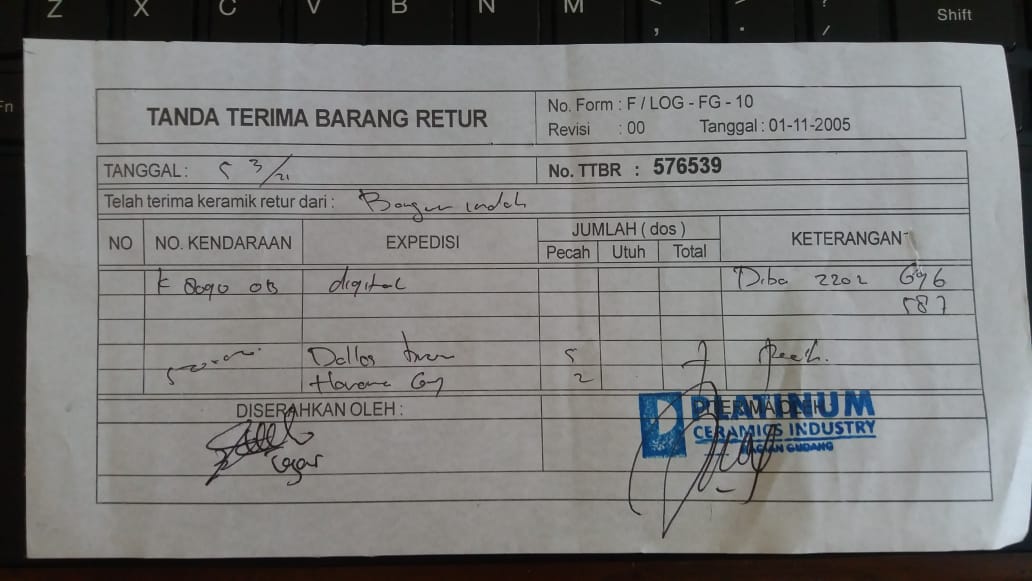 Z X C V B N M < > ?
, . /
Shift
Fn
TANDA TERIMA BARANG RETUR
No. Form : F / LOG - FG - 10
Revisi : 00 Tanggal : 01-11-2005
TANGGAL : 5 3/21
No. TTBR : 576539
Telah terima keramik retur dari : Bangun indah
NO NO. KENDARAAN EXPEDISI JUMLAH ( dos ) KETERANGAN
Pecah Utuh Total
K 8090 OB digital Diba 2202 Gy 6
587
Dallas 5 7 Pecah.
Havana Gy 2
DISERAHKAN OLEH :
PLATINUM
CERAMICS INDUSTRY
BAGIAN GUDANG